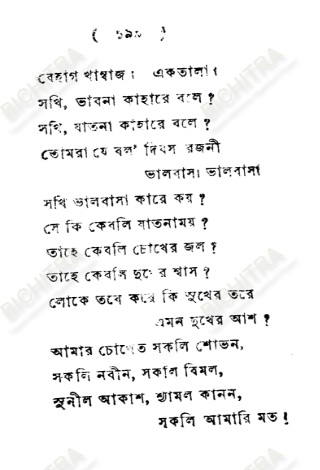 বেহাগ খাম্বাজ। একতালা।
সখি, ভাবনা কাহারে বলে ?
সখি, যাতনা কাহারে বলে ?
তোমরা যে বল' দিবস রজনী
ভালবাসা ভালবাসা
সখি ভালবাসা কারে কয় ?
সে কি কেবলি যাতনাময় ?
তাহে কেবলি চোখের জল ?
তাহে কেবলি দুখের শ্বাস ?
লোকে তবে করে কি সুখের তরে
এমন দুখের আশ ?
আমার চোখেত সকলি শোভন,
সকলি নবীন, সকলি বিমল,
সুনীল আকাশ, শ্যামল কানন,
সকলি আমারি মত !
BICHITRA
BICHITRA
BICHITRA
BICHITRA
BICHITRA
BICHITRA